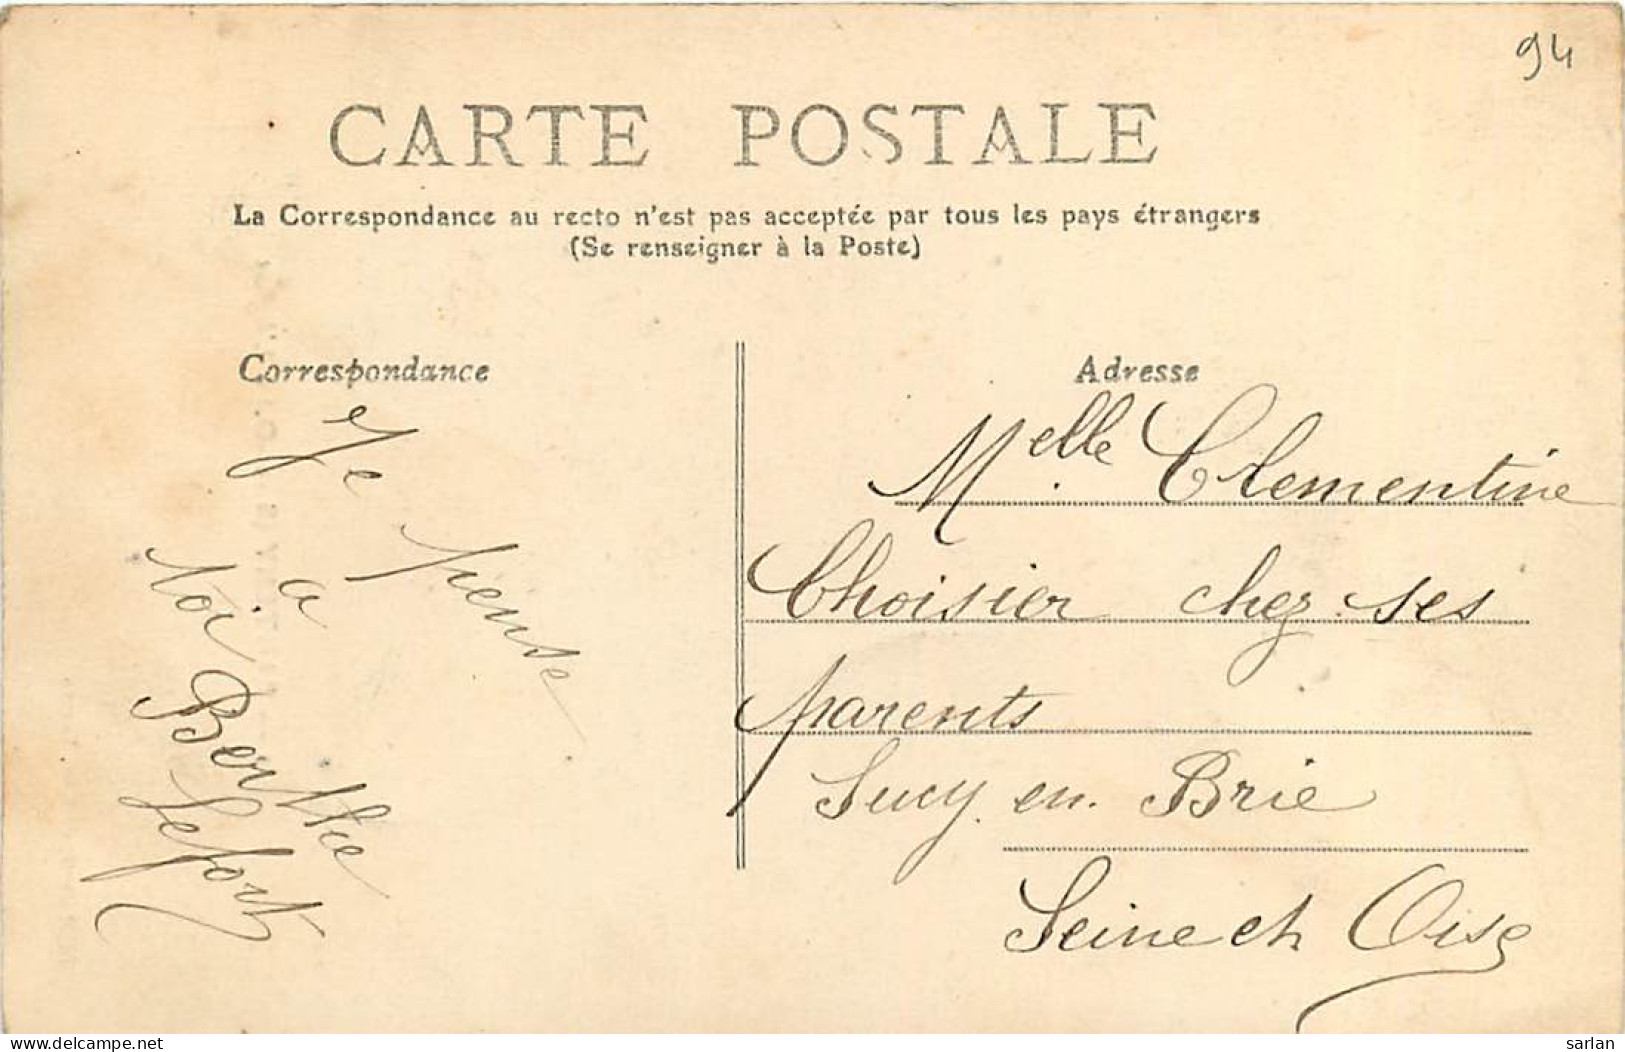 94
CARTE POSTALE
La Correspondance au recto n'est pas acceptée par tous les pays étrangers
(Se renseigner à la Poste)
Correspondance
Je pense
a toi
Berthe
Lefort
Adresse
Melle Clementine
Choisier chez ses
parents
Sucy en Brie
Seine et Oise
delcampe.net
sarlan